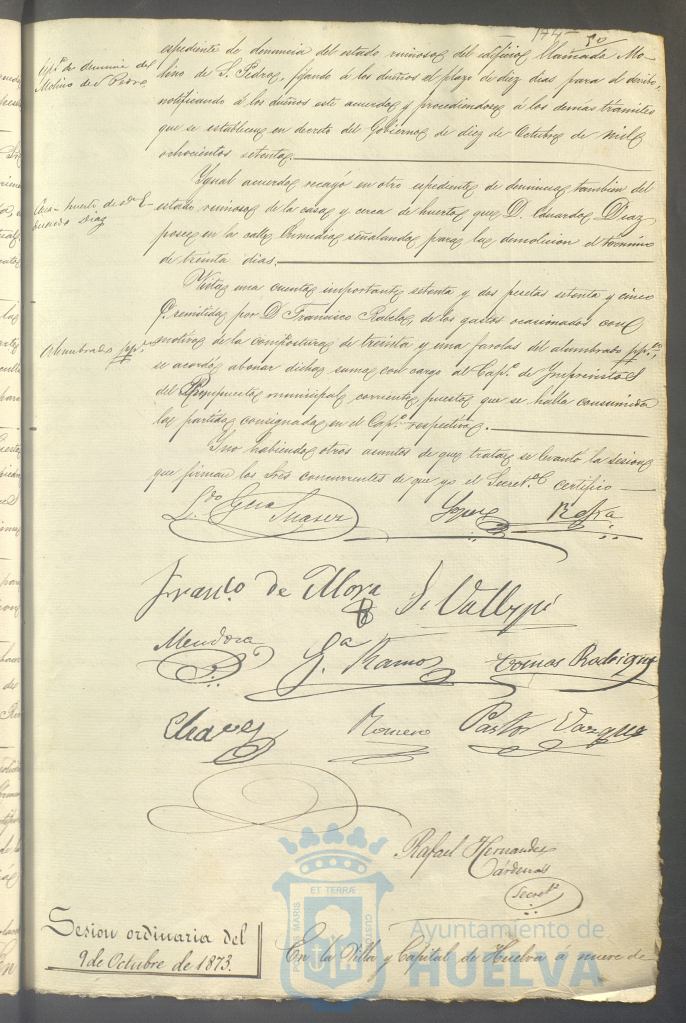 expediente de denuncia del estado ruinoso del edificio llamado Mo-
Exp.te de denuncia del
Molino de S. Pedro
lino de S. Pedro, fijando á los dueños el plazo de diez dias para el derribo,
notificando á los dueños este acuerdo y procediendose á los demás trámites
que se establece en decreto del Gobierno de diez de Octubre de mil
ochocientos setenta.
Ygual acuerdo recayó en otro espediente de denuncia tambien del
Casa huerto de Dn E-
duardo Diaz
estado ruinoso de la casa y cerca de huerto que D. Eduardo Diaz
posee en la calle señalando para la demolicion el término
de treinta dias.
Vista una cuenta importante setenta y dos pesetas setenta y cinco
remitida por D. Francisco de los gastos ocasionados con
Alumbrado
motivo de la compostura de treinta y una farolas del alumbrado
se acordó abonar dicha suma con cargo al Cap.o de Ymprevistos
del Presupuesto municipal corriente, puesto que se halla consumida
la partida consignada en el Cap.o respectivo.
Y no habiendo otros asuntos de que tratar se levantó la sesion
que firman los Sres concurrentes de que yo el Secret.o certifico
L.do Garcia Suarez
Lopez
Franc.o de Mora
J. Vallejo
Mendoza
G.a Ramos
Tomas Rodriguez
Chaves
Romero
Pastor Vazquez
Rafael Hernandez
Cárdenas
Secret.o
Sesion ordinaria del
9 de Octubre de 1873.
En la Villa y Capital de Huelva á nueve de
PORTUS MARIS ET TERRÆ CUSTODIA
Ayuntamiento de
HUELVA